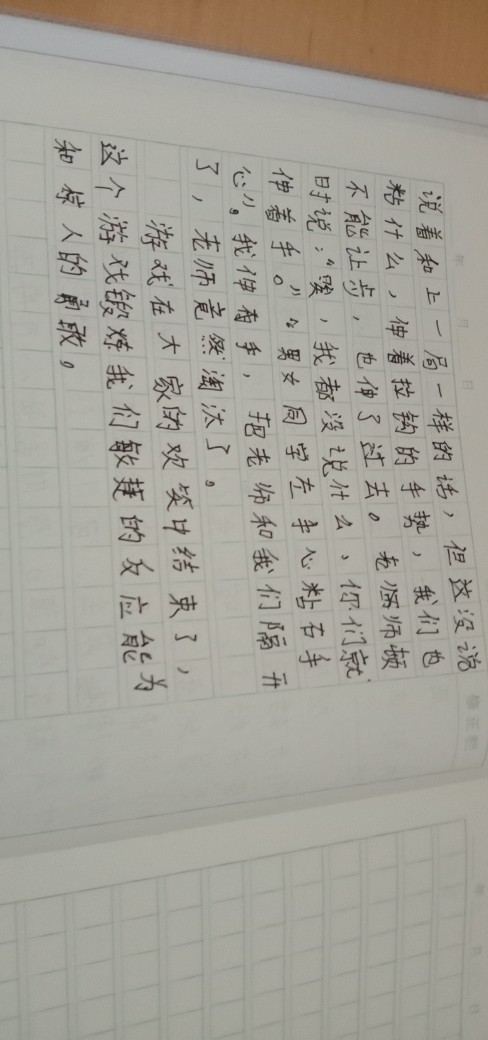 说着和上一局一样的话，但这没说
粘什么，伸着拉钩的手势，我们也
不能让步，也伸了过去。老师师顿
时说："唉，我都没说什么，你们就
伸着手。""男女同学左手心粘右手
心"。我伸有手，把老师和我们隔开
了，老师竟然淘汰了。
游戏在大家的欢笑中结束了，
这个游戏锻炼我们敏捷的反应能为
和惊人的勇敢。